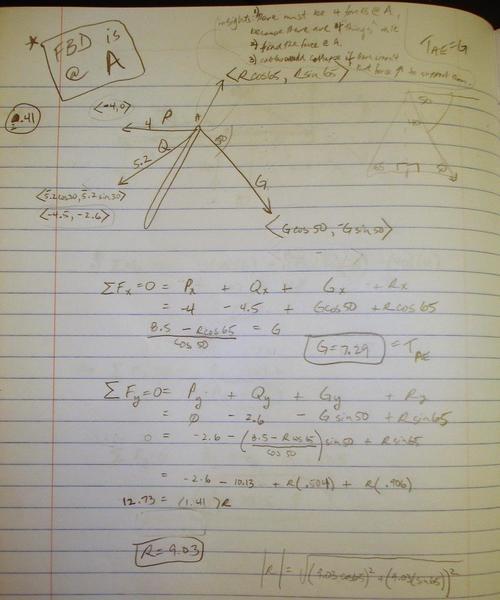 * FBD is
@ A
insights: 1) there must be 4 forces @ A,
because there are 4 "things"
2) find the force @ A.
3) would collapse if there wasn't
that force to support them.
T_AE = G
<Rcos65, Rsin65>
2.41
<-4, 0>
4 P
A
Q
5.2
50
G
<5.2cos30, 5.2sin30>
<-4.5, -2.6>
<Gcos50, -Gsin50>
50
65
50
ΣFx = 0 = Px + Qx + Gx + Rx
= -4 - 4.5 + Gcos50 + Rcos65
8.5 - Rcos65 = G
cos50
G = 7.29 = T_AE
ΣFy = 0 = Py + Qy + Gy + Ry
= 0 - 2.6 - Gsin50 + Rsin65
0 = -2.6 - (8.5 - Rcos65) sin50 + Rsin65
cos50
= -2.6 - 10.13 + R(.504) + R(.906)
12.73 = (1.41)R
R = 9.03
|R| = √(9.03cos65)² + (9.03(sin65))²